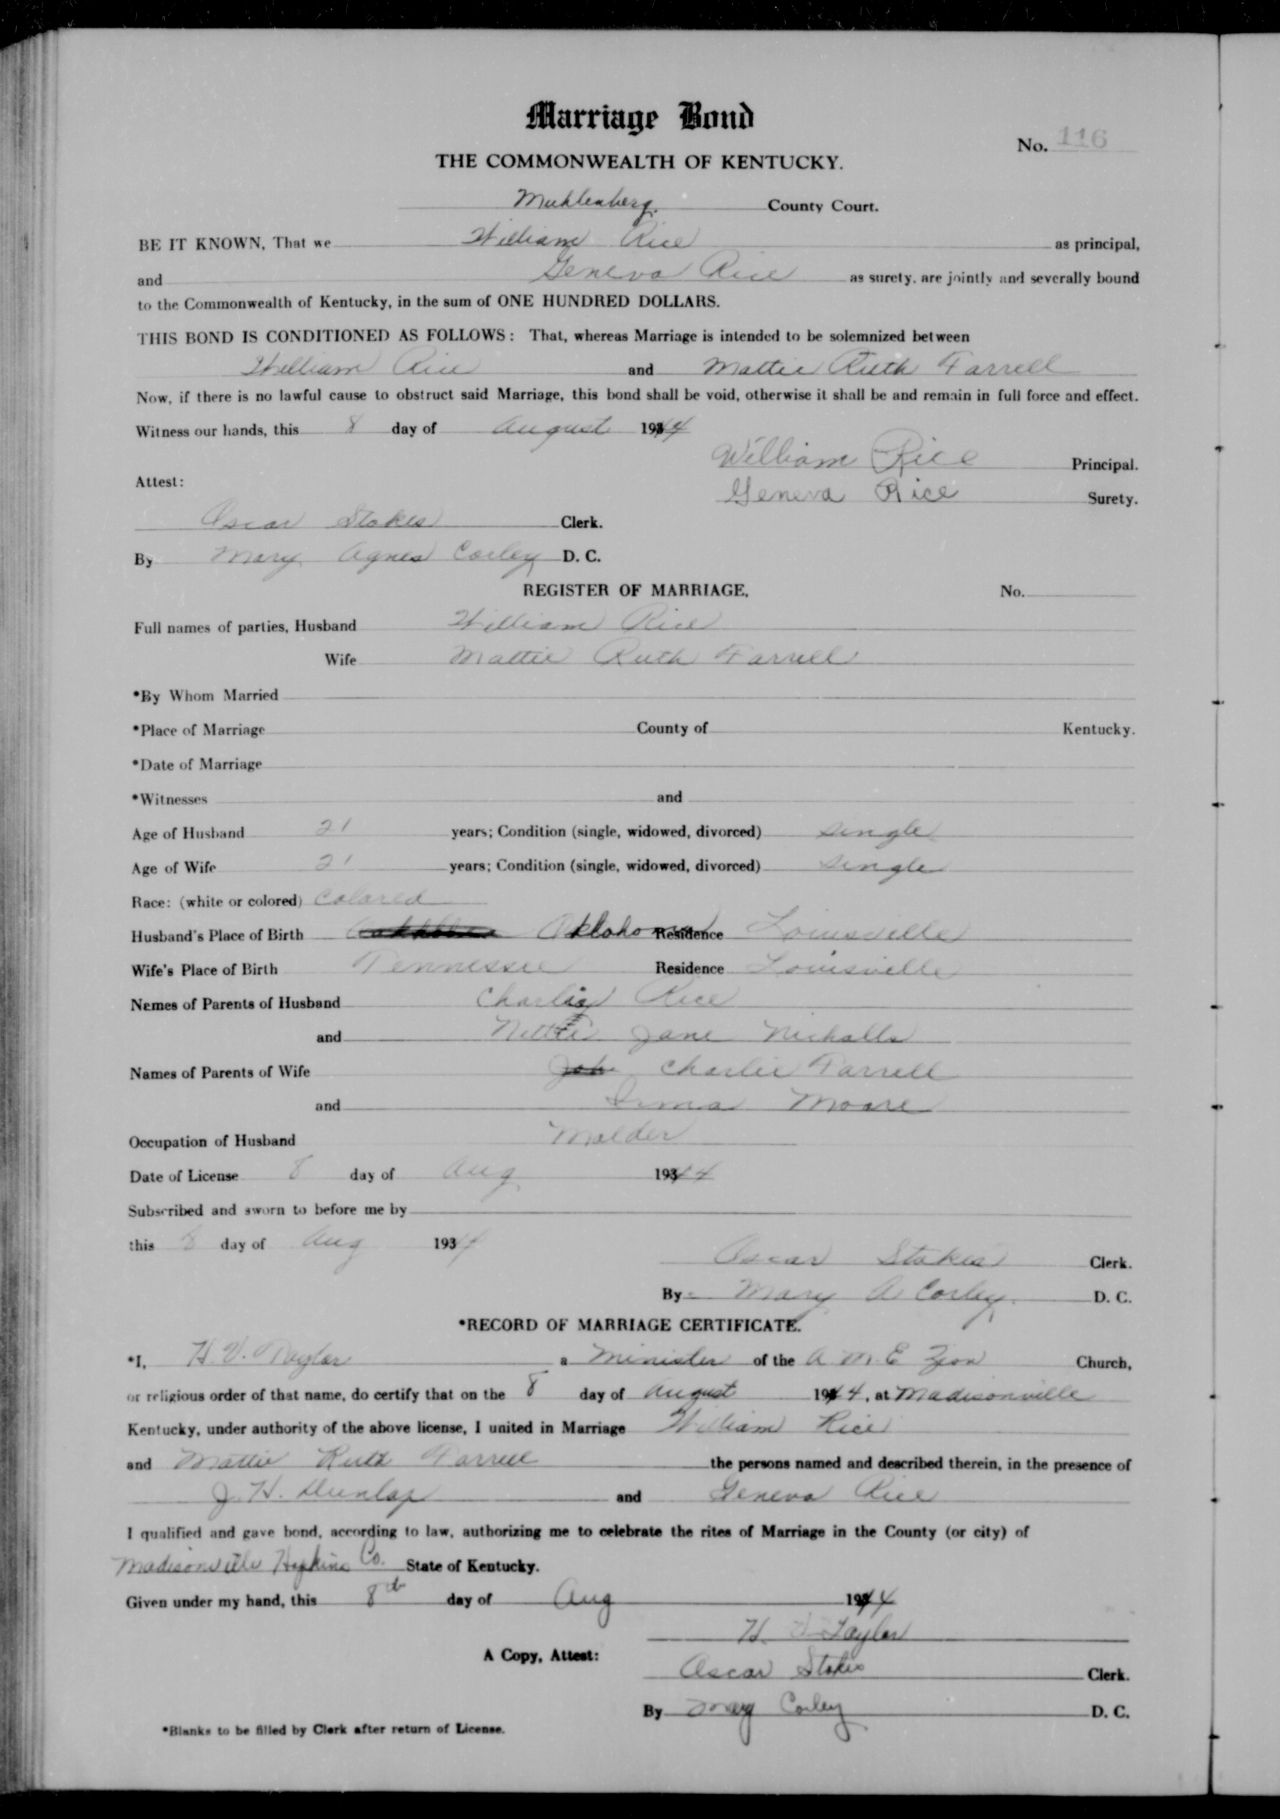 Marriage Bond
No. 116
THE COMMONWEALTH OF KENTUCKY.
Muhlenberg. County Court.
BE IT KNOWN, That we William Rice as principal,
and Geneva Rice as surety, are jointly and severally bound
to the Commonwealth of Kentucky, in the sum of ONE HUNDRED DOLLARS.
THIS BOND IS CONDITIONED AS FOLLOWS: That, whereas Marriage is intended to be solemnized between
William Rice and Mattie Ruth Farrell
Now, if there is no lawful cause to obstruct said Marriage, this bond shall be void, otherwise it shall be and remain in full force and effect.
Witness our hands, this 8 day of August 1944
William Rice Principal.
Attest:
Geneva Rice Surety.
Oscar Stokes Clerk.
By Mary Agnes Corley D. C.
REGISTER OF MARRIAGE. No.
Full names of parties, Husband William Rice
Wife Mattie Ruth Farrell
*By Whom Married
*Place of Marriage County of Kentucky.
*Date of Marriage
*Witnesses and
Age of Husband 21 years; Condition (single, widowed, divorced) single
Age of Wife 21 years; Condition (single, widowed, divorced) single
Race: (white or colored) Colored
Husband's Place of Birth Oklahoma Residence Louisville
Wife's Place of Birth Tennessee Residence Louisville
Names of Parents of Husband Charlie Rice
and Nettie Jane Nicholls
Names of Parents of Wife Charlie Farrell
and Irma Moore
Occupation of Husband Molder
Date of License 8 day of Aug 1944
Subscribed and sworn to before me by
this 8 day of Aug 1934
Oscar Stokes Clerk.
By Mary A Corley. D. C.
*RECORD OF MARRIAGE CERTIFICATE.
*I, H. V. Taylor a Minister of the A. M. E Zion Church,
or religious order of that name, do certify that on the 8 day of August 1944, at Madisonville
Kentucky, under authority of the above license, I united in Marriage William Rice
and Mattie Ruth Farrell the persons named and described therein, in the presence of
J. H. Dunlap and Geneva Rice
I qualified and gave bond, according to law, authorizing me to celebrate the rites of Marriage in the County (or city) of
Madisonville Hopkins Co. State of Kentucky.
Given under my hand, this 8th day of Aug 1944
H. V Taylor
A Copy, Attest:
Oscar Stokes Clerk.
By Mary Corley D. C.
*Blanks to be filled by Clerk after return of License.